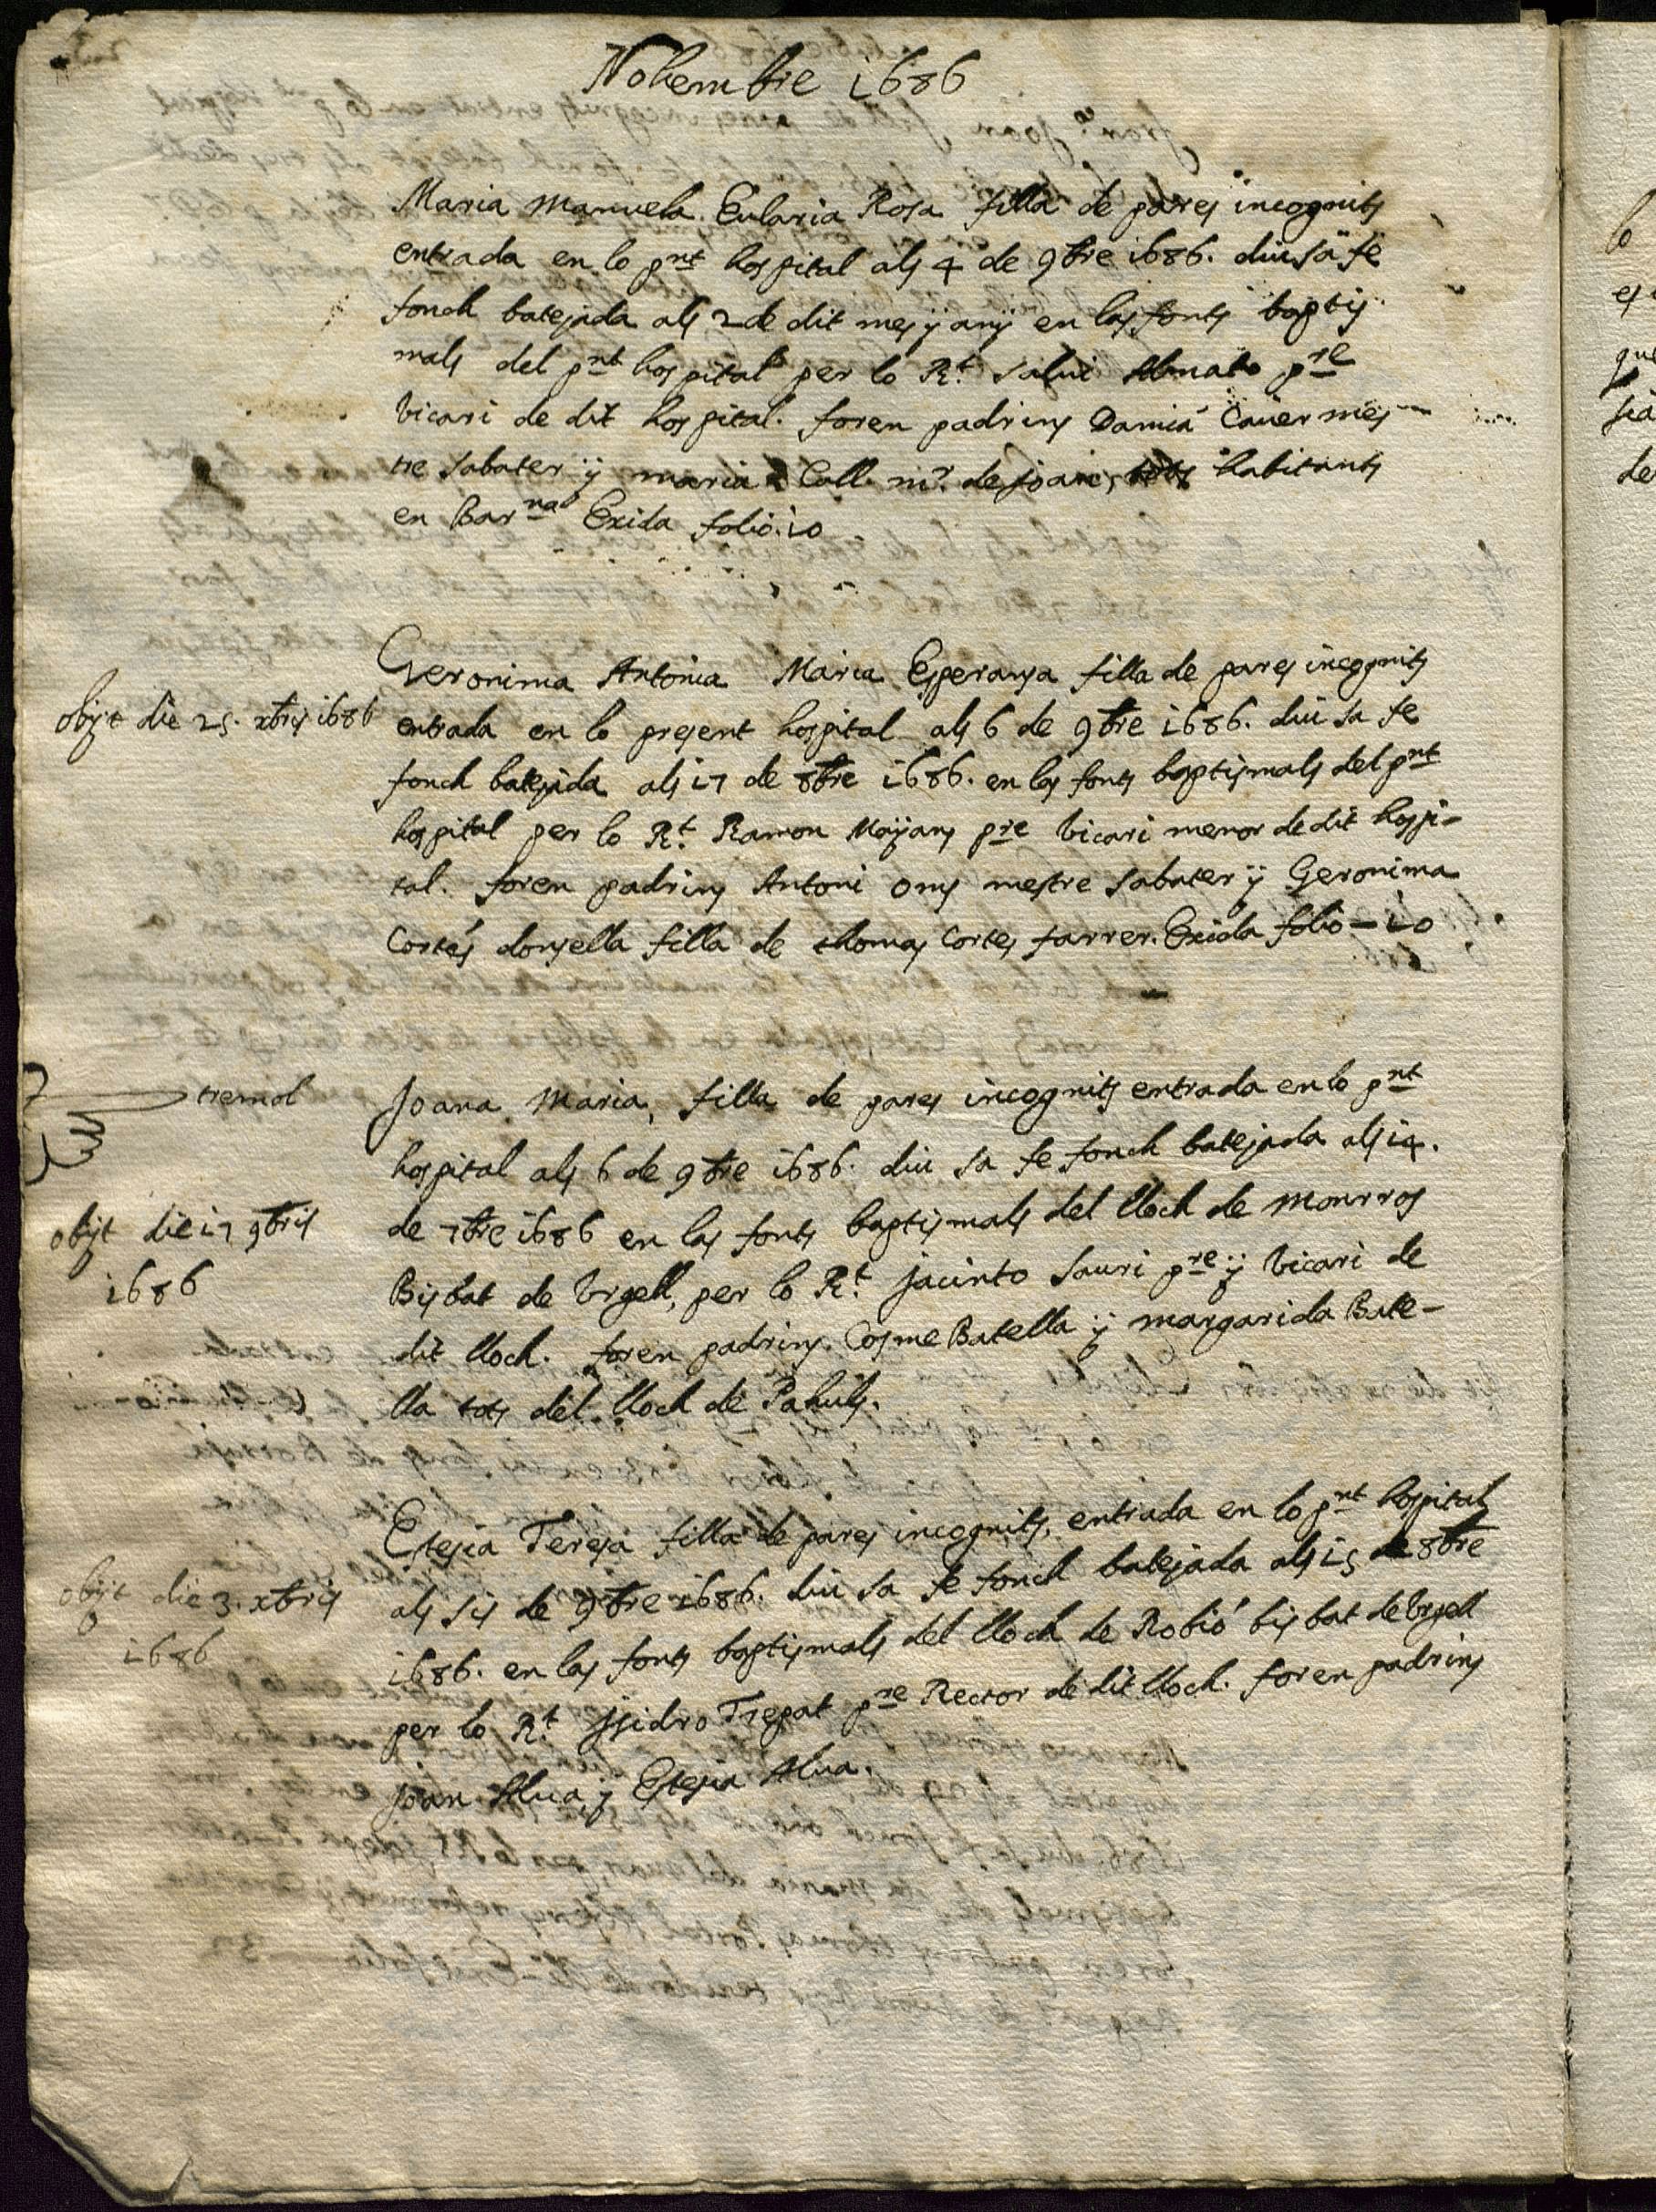 Nohembre 1686
Maria Manuela Eularia Rosa filla de pares incognits
entrada en lo pnt hospital als 4 de 9bre 1686. diu sa fe
fonch batejada als 2 de dit mes ÿ anÿ en las fonts baptis
mals del pnt hospital per lo Rt. Salui pre
Vicari de dit hospital. foren padrins Damiá Cauer mes
tre sabater ÿ maria Coll mr. de joan, tots habitants
en Barna Exida folio. 10
obijt die 25. xbris 1686
Geronima Antonia Maria Esperansa filla de pares incognits
entrada en lo present hospital als 6 de 9bre 1686. diu sa fe
fonch batejada als 17 de 8bre 1686. en las fonts baptismals del pnt
hospital per lo Rt. Ramon Maÿans pre Vicari menor de dit hospi-
tal. foren padrins Antoni oms mestre sabater ÿ Geronima
Cortés donsella filla de thomas Cortes farrer. Exida folio - 10
tremol
obijt die 17 9bris
1686
Joana Maria, filla de pares incognits entrada en lo pnt
hospital als 6 de 9bre 1686. diu sa fe fonch batejada als 14.
de 7bre 1686 en las fonts baptismals del lloch de Monrros
Bisbat de Vrgell, per lo Rt. jacinto Sauri pre ÿ Vicari de
dit lloch. foren padrins Cosme Batella ÿ margarida Bate-
lla tots del lloch de Pahuls.
obijt die 3. xbris
1686
Etesia Teresa filla de pares incognits, entrada en lo pnt hospital
als sis de 9bre 1686. diu sa fe fonch batejada als 15 de 8bre
1686. en las fonts baptismals del lloch de Robió bisbat de Vrgell
per lo Rt. Isidro Trepat pre Rector de dit lloch. foren padrins
joan Alua, ÿ Etesia Alua.